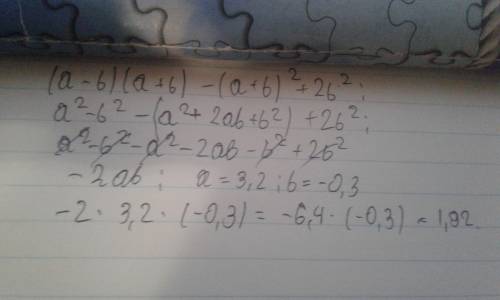 (a-b)(a+b) - (a+b)² + 2b²;
a²-b² - (a²+2ab+b²) + 2b²;
a²-b²-a²-2ab-b²+2b²
-2ab; a=3,2; b=-0,3
-2·3,2·(-0,3) = -6,4·(-0,3) = 1,92.